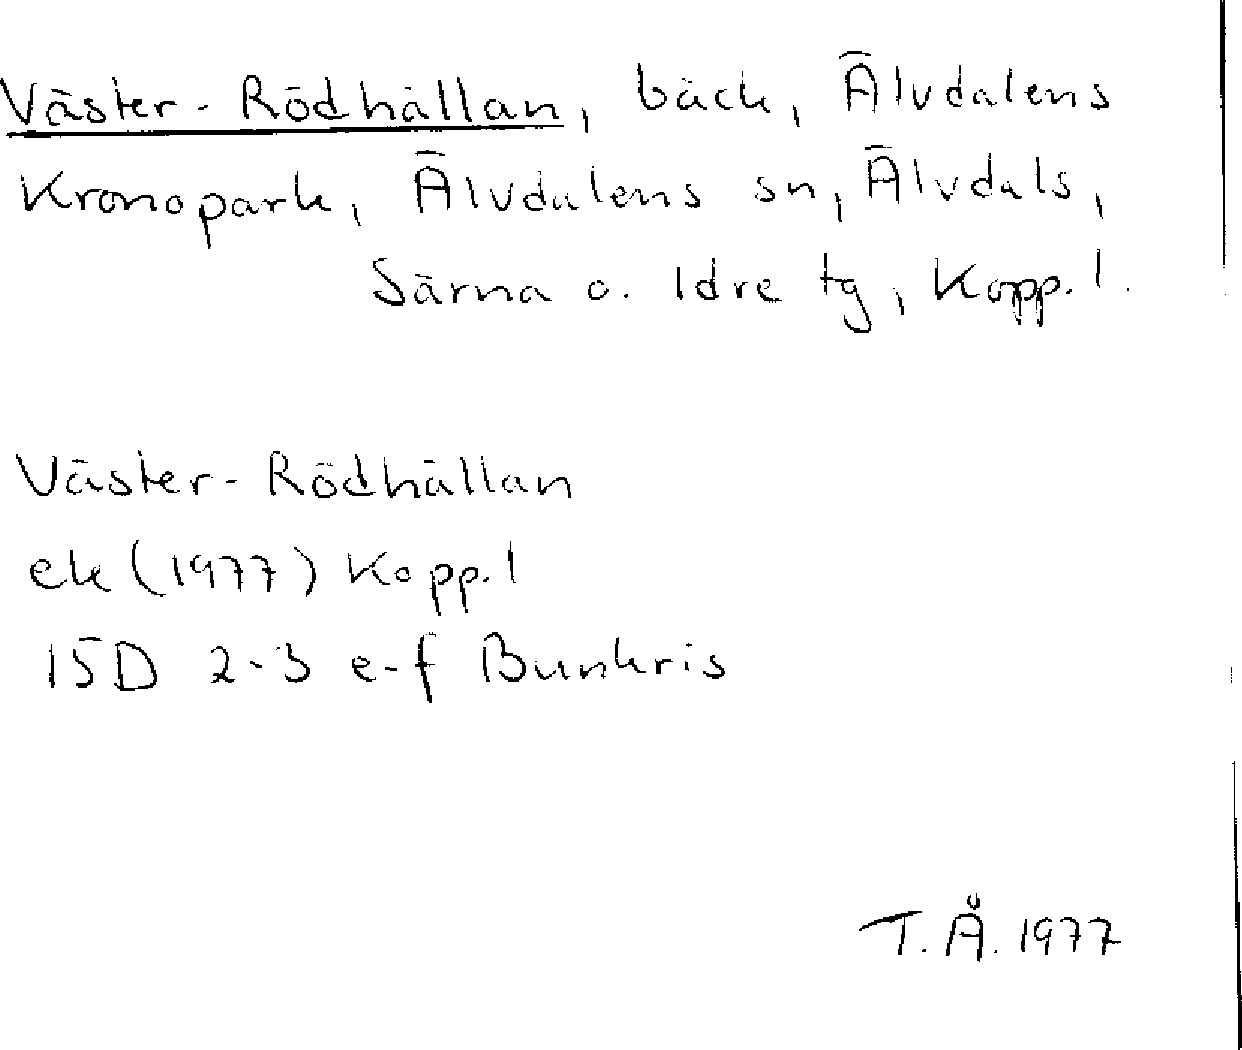 Väster-Rödhällan, bäck, Älvdalens
Kronopark, Älvdalens sn, Älvdals,
Särna o. Idre tg, Kopp. l.
Väster-Rödhällan
ek (1977) Kopp. l
15D 2-3 e-f Bunkris
T. Å. 1977